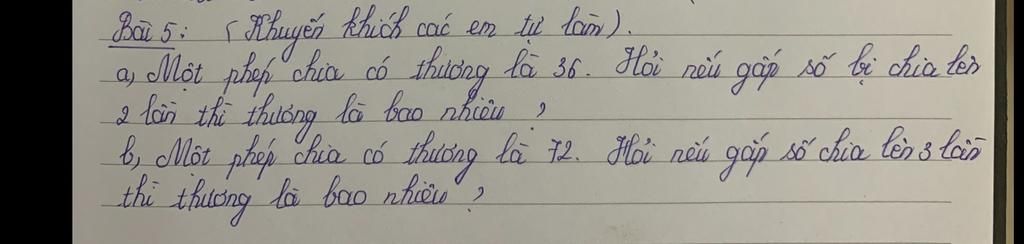 Bài 5: (Khuyến khích các em tự làm).
a, Một phép chia có thương là 36. Hỏi nếu gấp số bị chia lên
2 lần thì thương là bao nhiêu ?
b, Một phép chia có thương là 72. Hỏi nếu gấp số chia lên 3 lần
thì thương là bao nhiêu ?